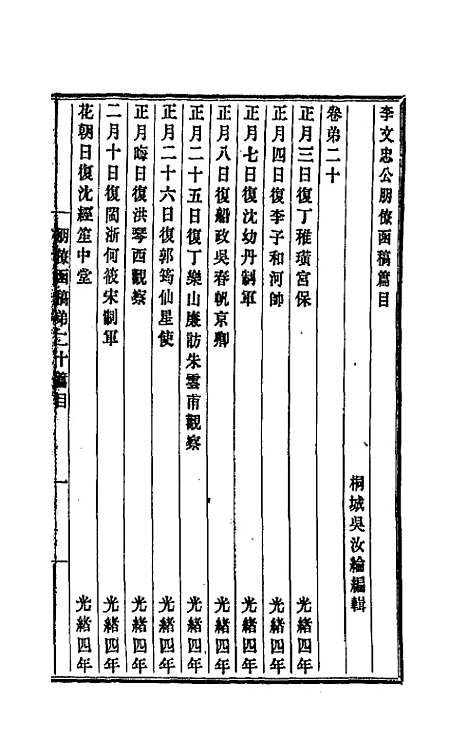 李文忠公朋僚函稿篇目
桐城吳汝綸編輯
卷弟二十
正月三日復丁稚璜宮保 光緒四年
正月四日復李子和河帥 光緒四年
正月七日復沈幼丹制軍 光緒四年
正月八日復船政吳春帆京卿 光緒四年
正月二十五日復丁樂山廉訪朱雲甫觀察 光緒四年
正月二十六日復郭筠仙星使 光緒四年
正月晦日復洪琴西觀察 光緒四年
二月十日復閩浙何筱宋制軍 光緒四年
花朝日復沈經笙中堂 光緒四年
朋僚函稿弟二十篇目
一